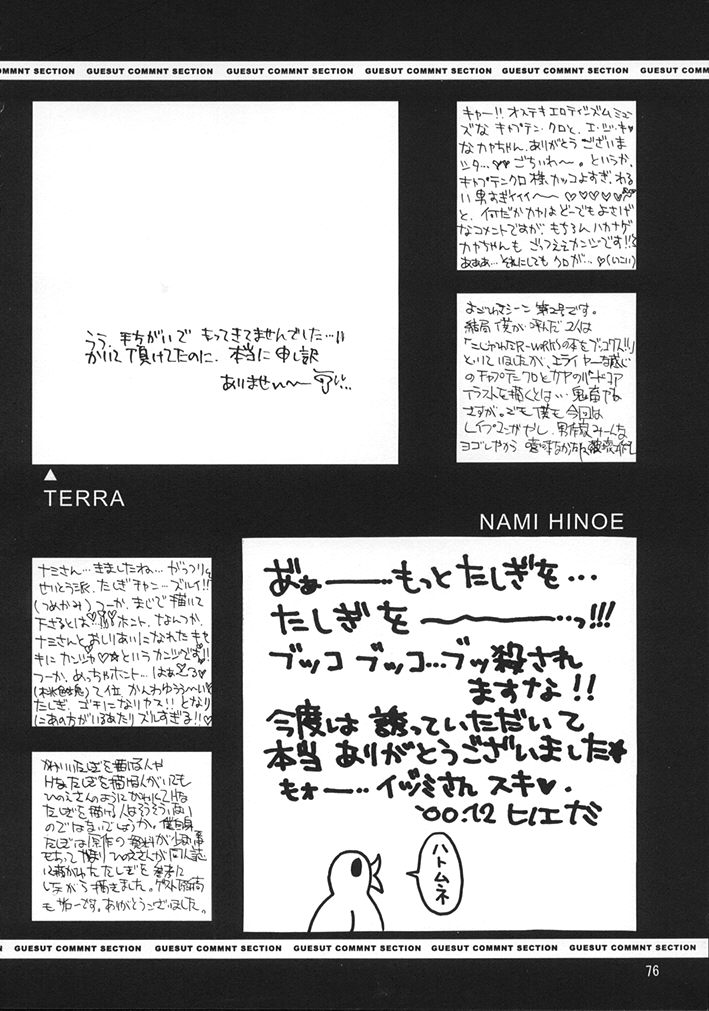 COMMNT SECTION GUESUT COMMNT SECTION GUESUT COMMNT SECTION GUESUT COMMNT SECTION GUESUT COMMNT SECTION GUESUT COMM
うう、手ちがいで もってきてませんでした…!!
かいて頂けてたのに、本当に申し訳
ありませぬ〜
TERRA
キャー!! オステキエロティシズムミュー
ズな キャプテン・クロと、エ・ッ・キ♥
なカヤちゃん、ありがとう ございま
シタ…♥♥ ごちいわ〜。というか、
キャプテンクロ様カッコよすぎ、わる
い男すぎイイイ〜〜♡♡♡♡♡
と、何だかカヤはどーでもよさげ
なコメントですが、もちろんハカナゲ
カヤちゃんも ごっつええカンジです!!と
あああ… それにしても クロが… ♡(いこい)
よごれてシーン 第2号です。
結局 僕が 呼んだ 2人は
といっていましたが、エライヤーな感じ
のキャプテンクロとカヤのハードコア
イラストを描くとは… 鬼畜やな
さすが。でも僕も今回は
NAMI HINOE
ナミさん… きましたね… がっつり、
せいとう派、たしぎチャン… ズルイ!!
(つめかみ) つーか、まじで描いて
下さるとは… ホント、なんつか、
ナミさんと おしりあいになれた キャ
というカンジです!!
つーか、めっちゃホント… はぁ〜
て位、かんわゆうう〜い
たしぎ、ゴチになりヤス!! となり
にあの方がいるあたり ズルすぎる!!♡
かわいいたしぎを描ける人や
Hなたしぎを描ける人がいても
ひのえさんのようにかわいくてHな
たしぎを描ける人はそうそういない
のではないでしょうか。僕自身
たしぎは原作の資料が
ひのえさんが同人誌
に描かれたたしぎを参考に
しながら描きました。ゲスト原稿
も サンキューです。ありがとうございました。
あぁ――…もっと たしぎを…
たしぎを 〜〜〜…っ!!!
ブッコ ブッコ…ブッ殺され
ますな!!
今度は 誘っていただいて
本当 ありがとうございました★
もォー… イヅミさん スキ♥.
'00.12 ヒノエナミ
ハトムネ
N GUESUT COMMNT SECTION GUESUT COMMNT SECTION GUESUT COMMNT SECTION GUESUT COMMNT SECTION GUESUT COMMNT SECTION
76